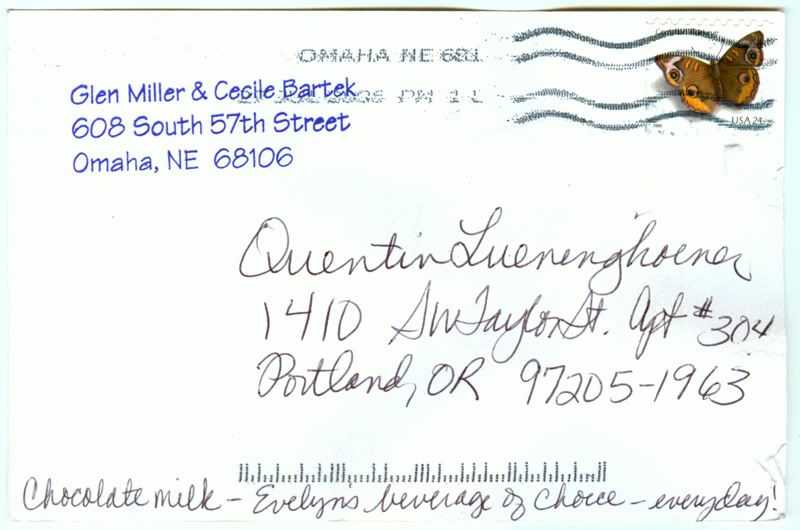 OMAHA NE 681
Glen Miller & Cecile Bartek
608 South 57th Street
Omaha, NE 68106
USA 24
Quentin Lueninghoener
1410 SW Taylor St. Apt #304
Portland, OR 97205-1963
Chocolate milk - Evelyn's beverage of choice - everyday!